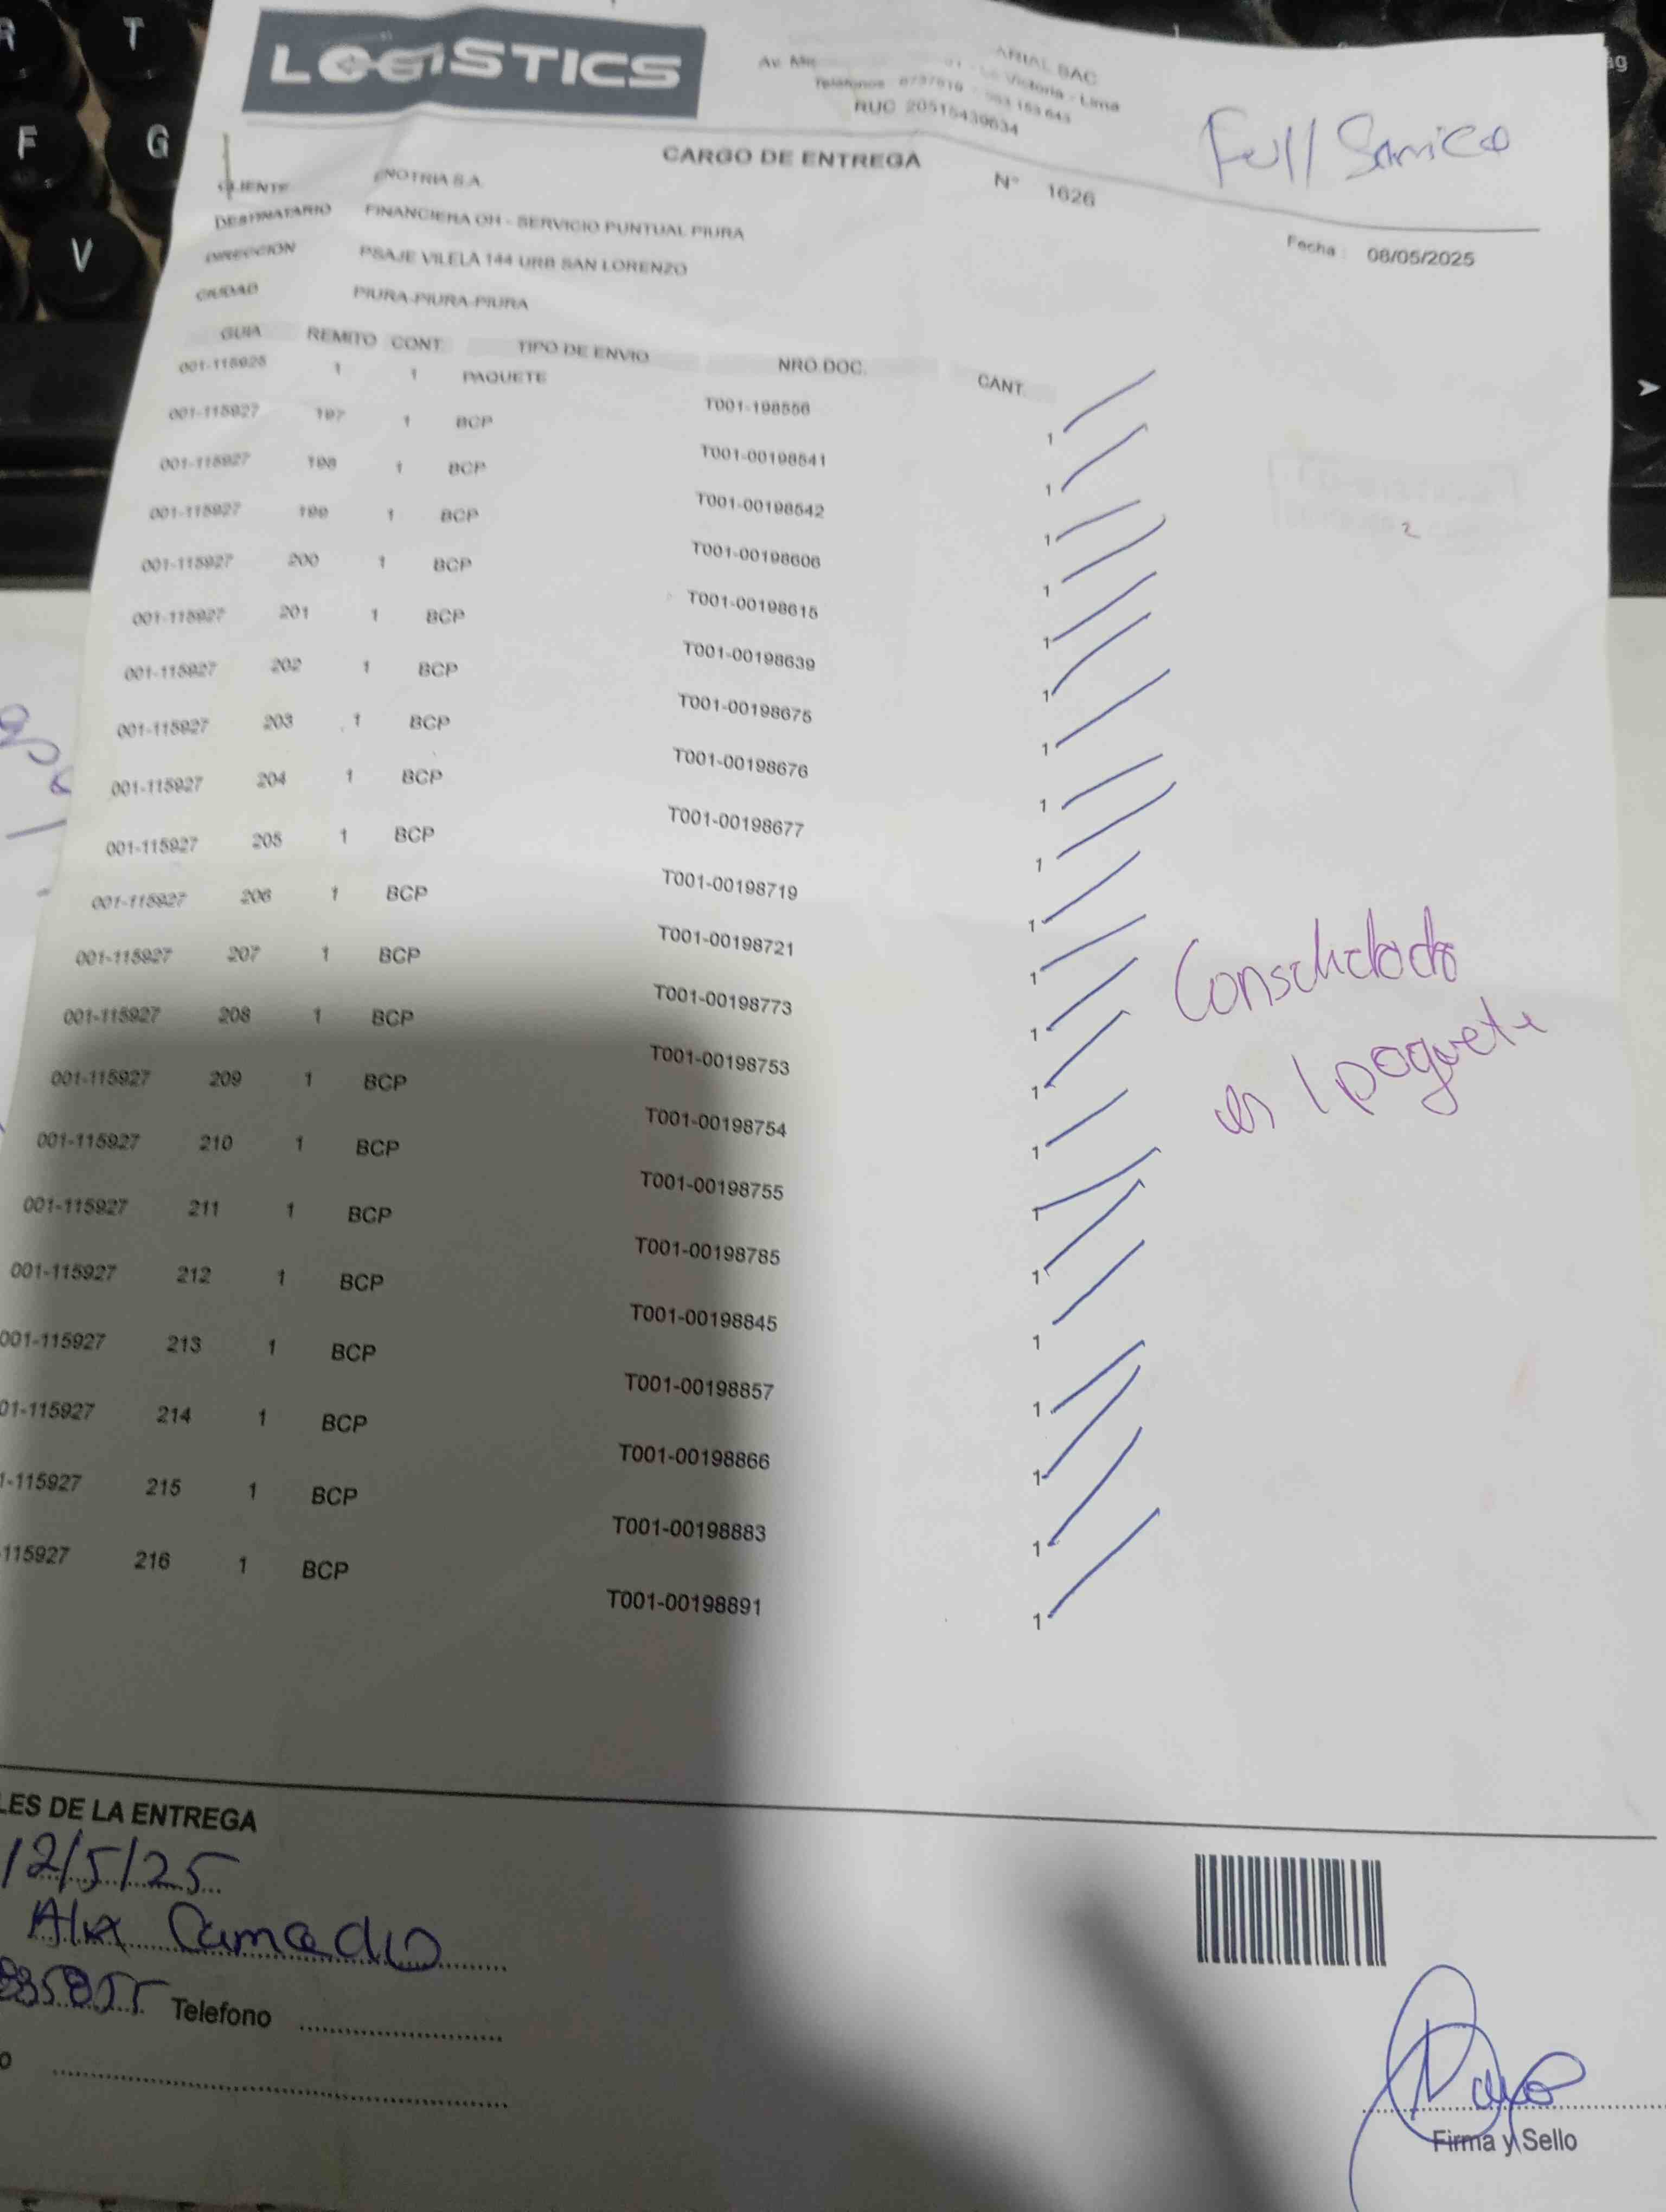 LOGISTICS
ARIAL SAC
Victoria - Lima
RUC 20515439634
Full Servico
CARGO DE ENTREGA
N° 1626
Fecha : 08/05/2025
CLIENTE ENOTRIA S.A.
DESTINATARIO FINANCIERA OH - SERVICIO PUNTUAL PIURA
DIRECCION PSAJE VILELA 144 URB SAN LORENZO
CIUDAD PIURA-PIURA-PIURA
GUIA REMITO CONT. TIPO DE ENVIO NRO DOC. CANT.
001-115925 1 1 PAQUETE T001-198556 1
001-115927 197 1 BCP T001-00198541 1
001-115927 198 1 BCP T001-00198542 1
001-115927 199 1 BCP T001-00198606 1
001-115927 200 1 BCP T001-00198615 1
001-115927 201 1 BCP T001-00198639 1
001-115927 202 1 BCP T001-00198675 1
001-115927 203 1 BCP T001-00198676 1
001-115927 204 1 BCP T001-00198677 1
001-115927 205 1 BCP T001-00198719 1
001-115927 206 1 BCP T001-00198721 1
001-115927 207 1 BCP T001-00198773 1
001-115927 208 1 BCP T001-00198753 1
001-115927 209 1 BCP T001-00198754 1
001-115927 210 1 BCP T001-00198755 1
001-115927 211 1 BCP T001-00198785 1
001-115927 212 1 BCP T001-00198845 1
001-115927 213 1 BCP T001-00198857 1
01-115927 214 1 BCP T001-00198866 1
1-115927 215 1 BCP T001-00198883 1
115927 216 1 BCP T001-00198891 1
Consolidado
en 1 paquete
LES DE LA ENTREGA
12/5/25
Alex Camacho
Telefono
o
Firma y Sello
R T
F G
V